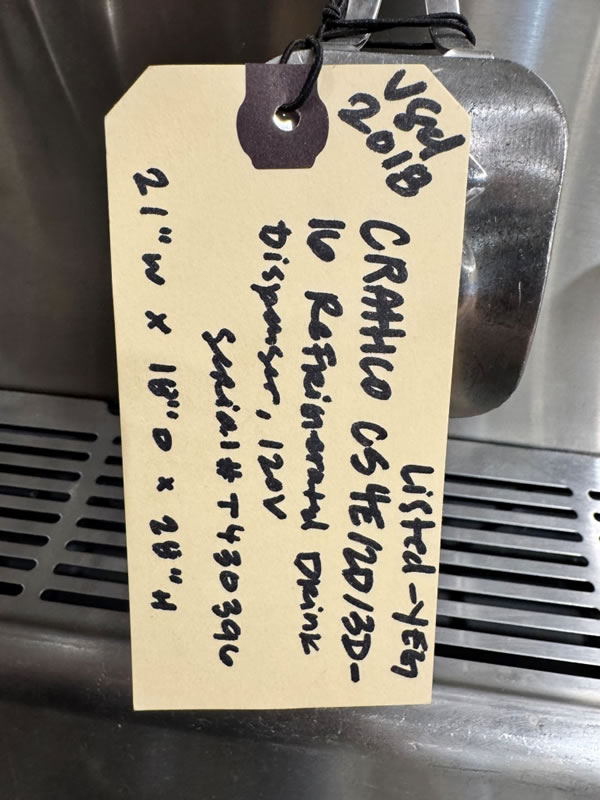 Used
2018
Listed - YEG
CRATHCO CS4E/2D/3D-
16 Refrigerated Drink
Dispenser, 120V
Serial # T430396
21" W x 18" D x 28" H